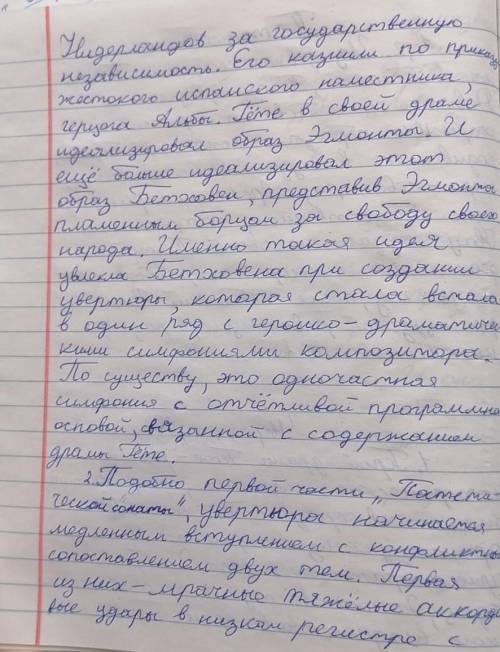 Нидерландов за государственную
независимость. Его казнили по приказу
жестокого испанского наместника,
герцога Альбы. Гёте в своей драме
идеализировал образ Эгмонты. И
ещё больше идеализировал этот
образ Бетховен, представив Эгмонта
пламенным борцом за свободу своех
народа. Именно такая идея
увлекла Бетховена при создании
увертюры, которая стала встала
в один ряд с героико-драматиче-
кими симфониями композитора.
По существу, это одночастная
симфония с отчётливой программно
основой, связанной с содержанием
драмы Гёте.
2. Подобно первой части „Патети-
ческой сонаты", увертюра начинается
медленным вступлением с конфликтны
сопоставлением двух тем. Первая
из них - мрачные тяжёлые аккордо
вые удары в низком регистре с